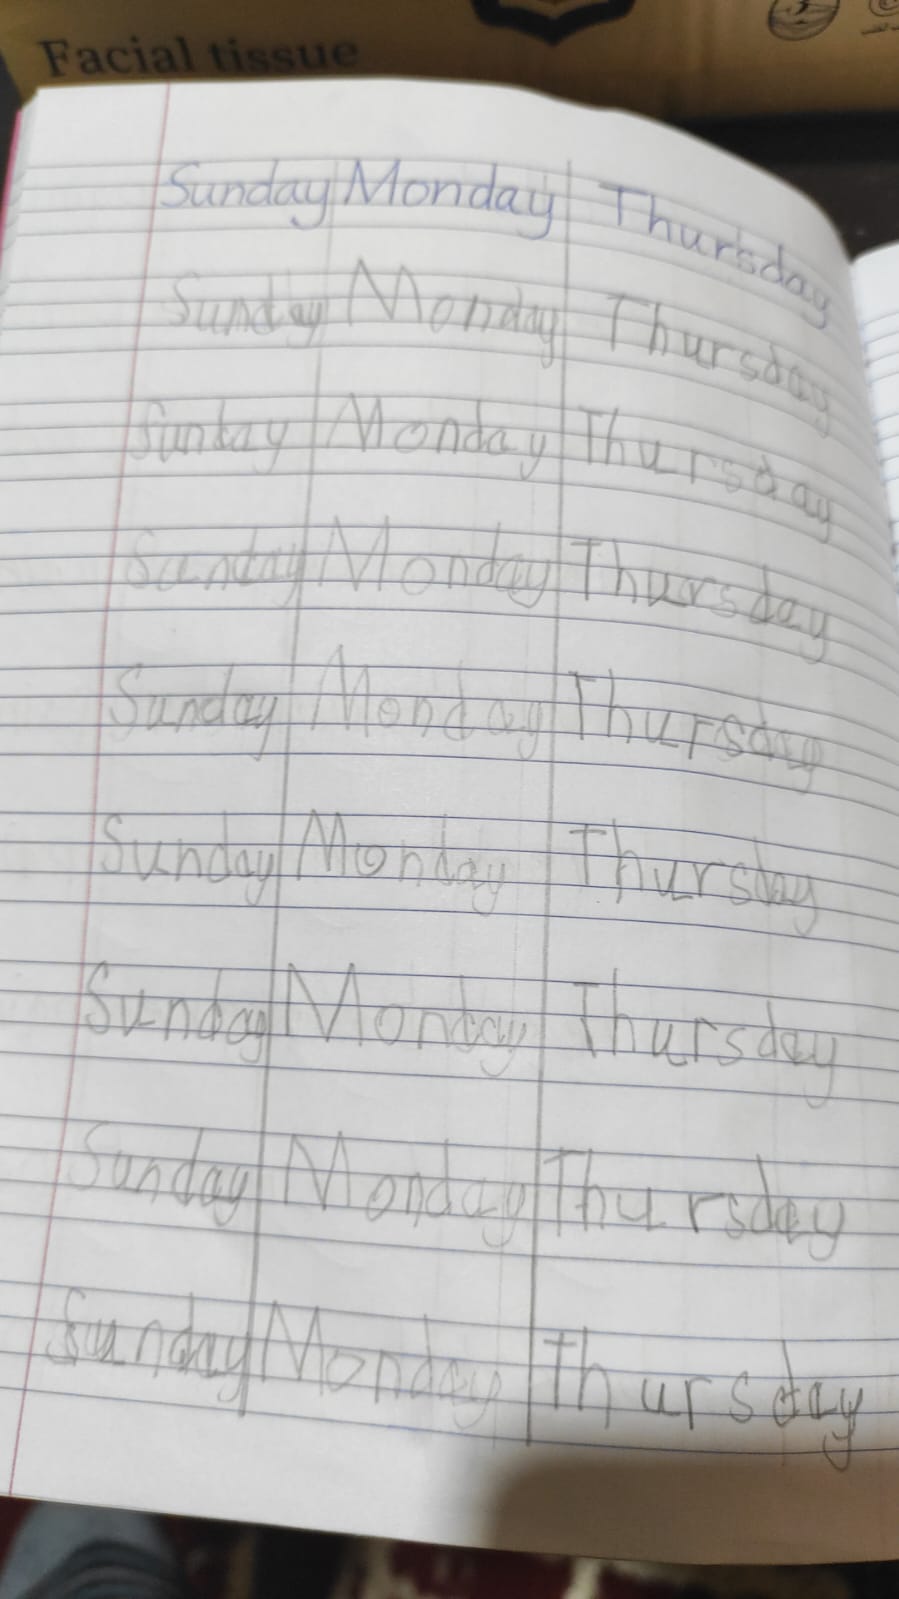 Facial tissue
Sunday Monday Thursday
Sunday Monday Thursday
Sunday Monday Thursday
Sunday Monday Thursday
Sunday Monday Thursday
Sunday Monday Thursday
Sunday Monday Thursday
Sunday Monday Thursday
Sunday Monday Thursday